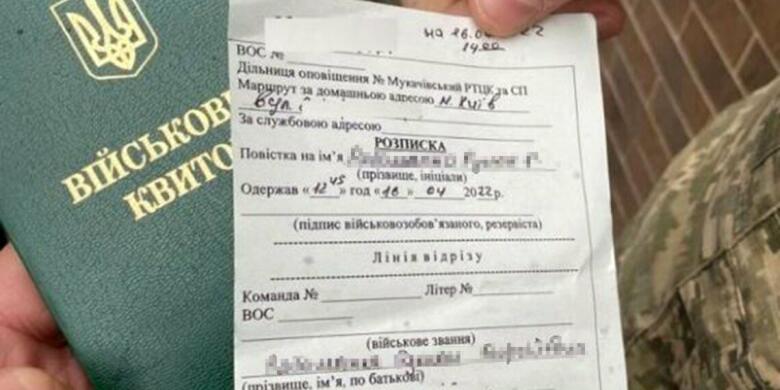 ВІЙСЬКОВ
КВИТО
на 16.0 22
14.00
ВОС №
Дільниця оповіщення № Мукачівський РТЦК та СП
Маршрут за домашньою адресою м. Київ
вул
За службовою адресою
РОЗПИСКА
Повістка на ім'я
(прізвище, ініціали)
Одержав «12 45» год «16» 04 2022р.
(підпис військовозобов'язаного, резервіста)
Лінія відрізу
Команда № Літер №
ВОС
(військове звання)
(прізвище, ім'я, по батькові)